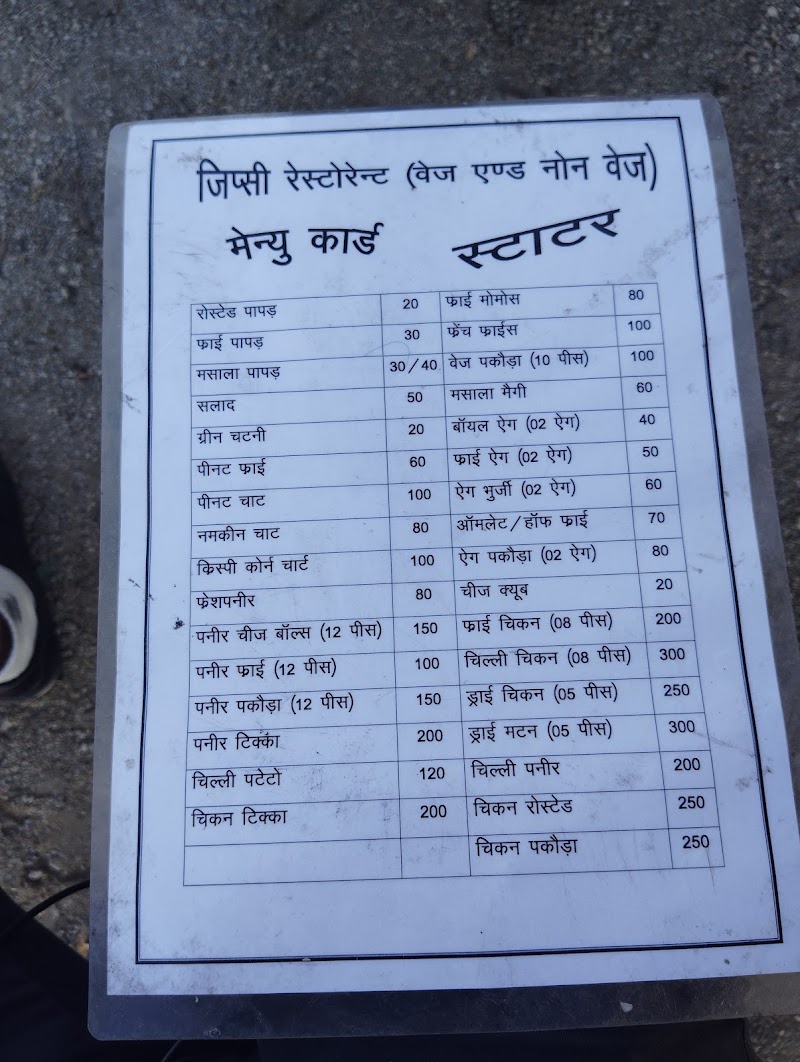 जिप्सी रेस्टोरेन्ट (वेज एण्ड नोन वेज)
मेन्यु कार्ड स्टाटर
रोस्टेड पापड़ 20 फ्राई मोमोस 80
फ्राई पापड़ 30 फ्रेंच फ्राईस 100
मसाला पापड़ 30/40 वेज पकौड़ा (10 पीस) 100
सलाद 50 मसाला मैगी 60
ग्रीन चटनी 20 बॉयल ऐग (02 ऐग) 40
पीनट फ्राई 60 फ्राई ऐग (02 ऐग) 50
पीनट चाट 100 ऐग भुर्जी (02 ऐग) 60
नमकीन चाट 80 ऑमलेट/हॉफ फ्राई 70
किस्पी कोर्न चार्ट 100 ऐग पकौड़ा (02 ऐग) 80
फ्रेशपनीर 80 चीज क्यूब 20
पनीर चीज बॉल्स (12 पीस) 150 फ्राई चिकन (08 पीस) 200
पनीर फ्राई (12 पीस) 100 चिल्ली चिकन (08 पीस) 300
पनीर पकौड़ा (12 पीस) 150 ड्राई चिकन (05 पीस) 250
पनीर टिक्का 200 ड्राई मटन (05 पीस) 300
चिल्ली पटेटो 120 चिल्ली पनीर 200
चिकन टिक्का 200 चिकन रोस्टेड 250
चिकन पकौड़ा 250